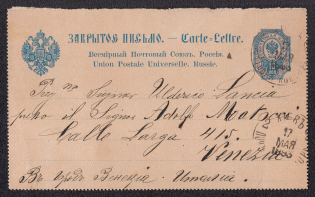 ЗАКРЫТОЕ ПИСЬМО. — Carte-Lettre.
Всемірный Почтовый Союзъ. Россія.
Union Postale Universelle. Russie.
Signor Ulderico Lancia
presso il Signor Adolfo
Calle Larga 415.
Venezia
Въ городъ Венеція Италія.
17
МАЯ